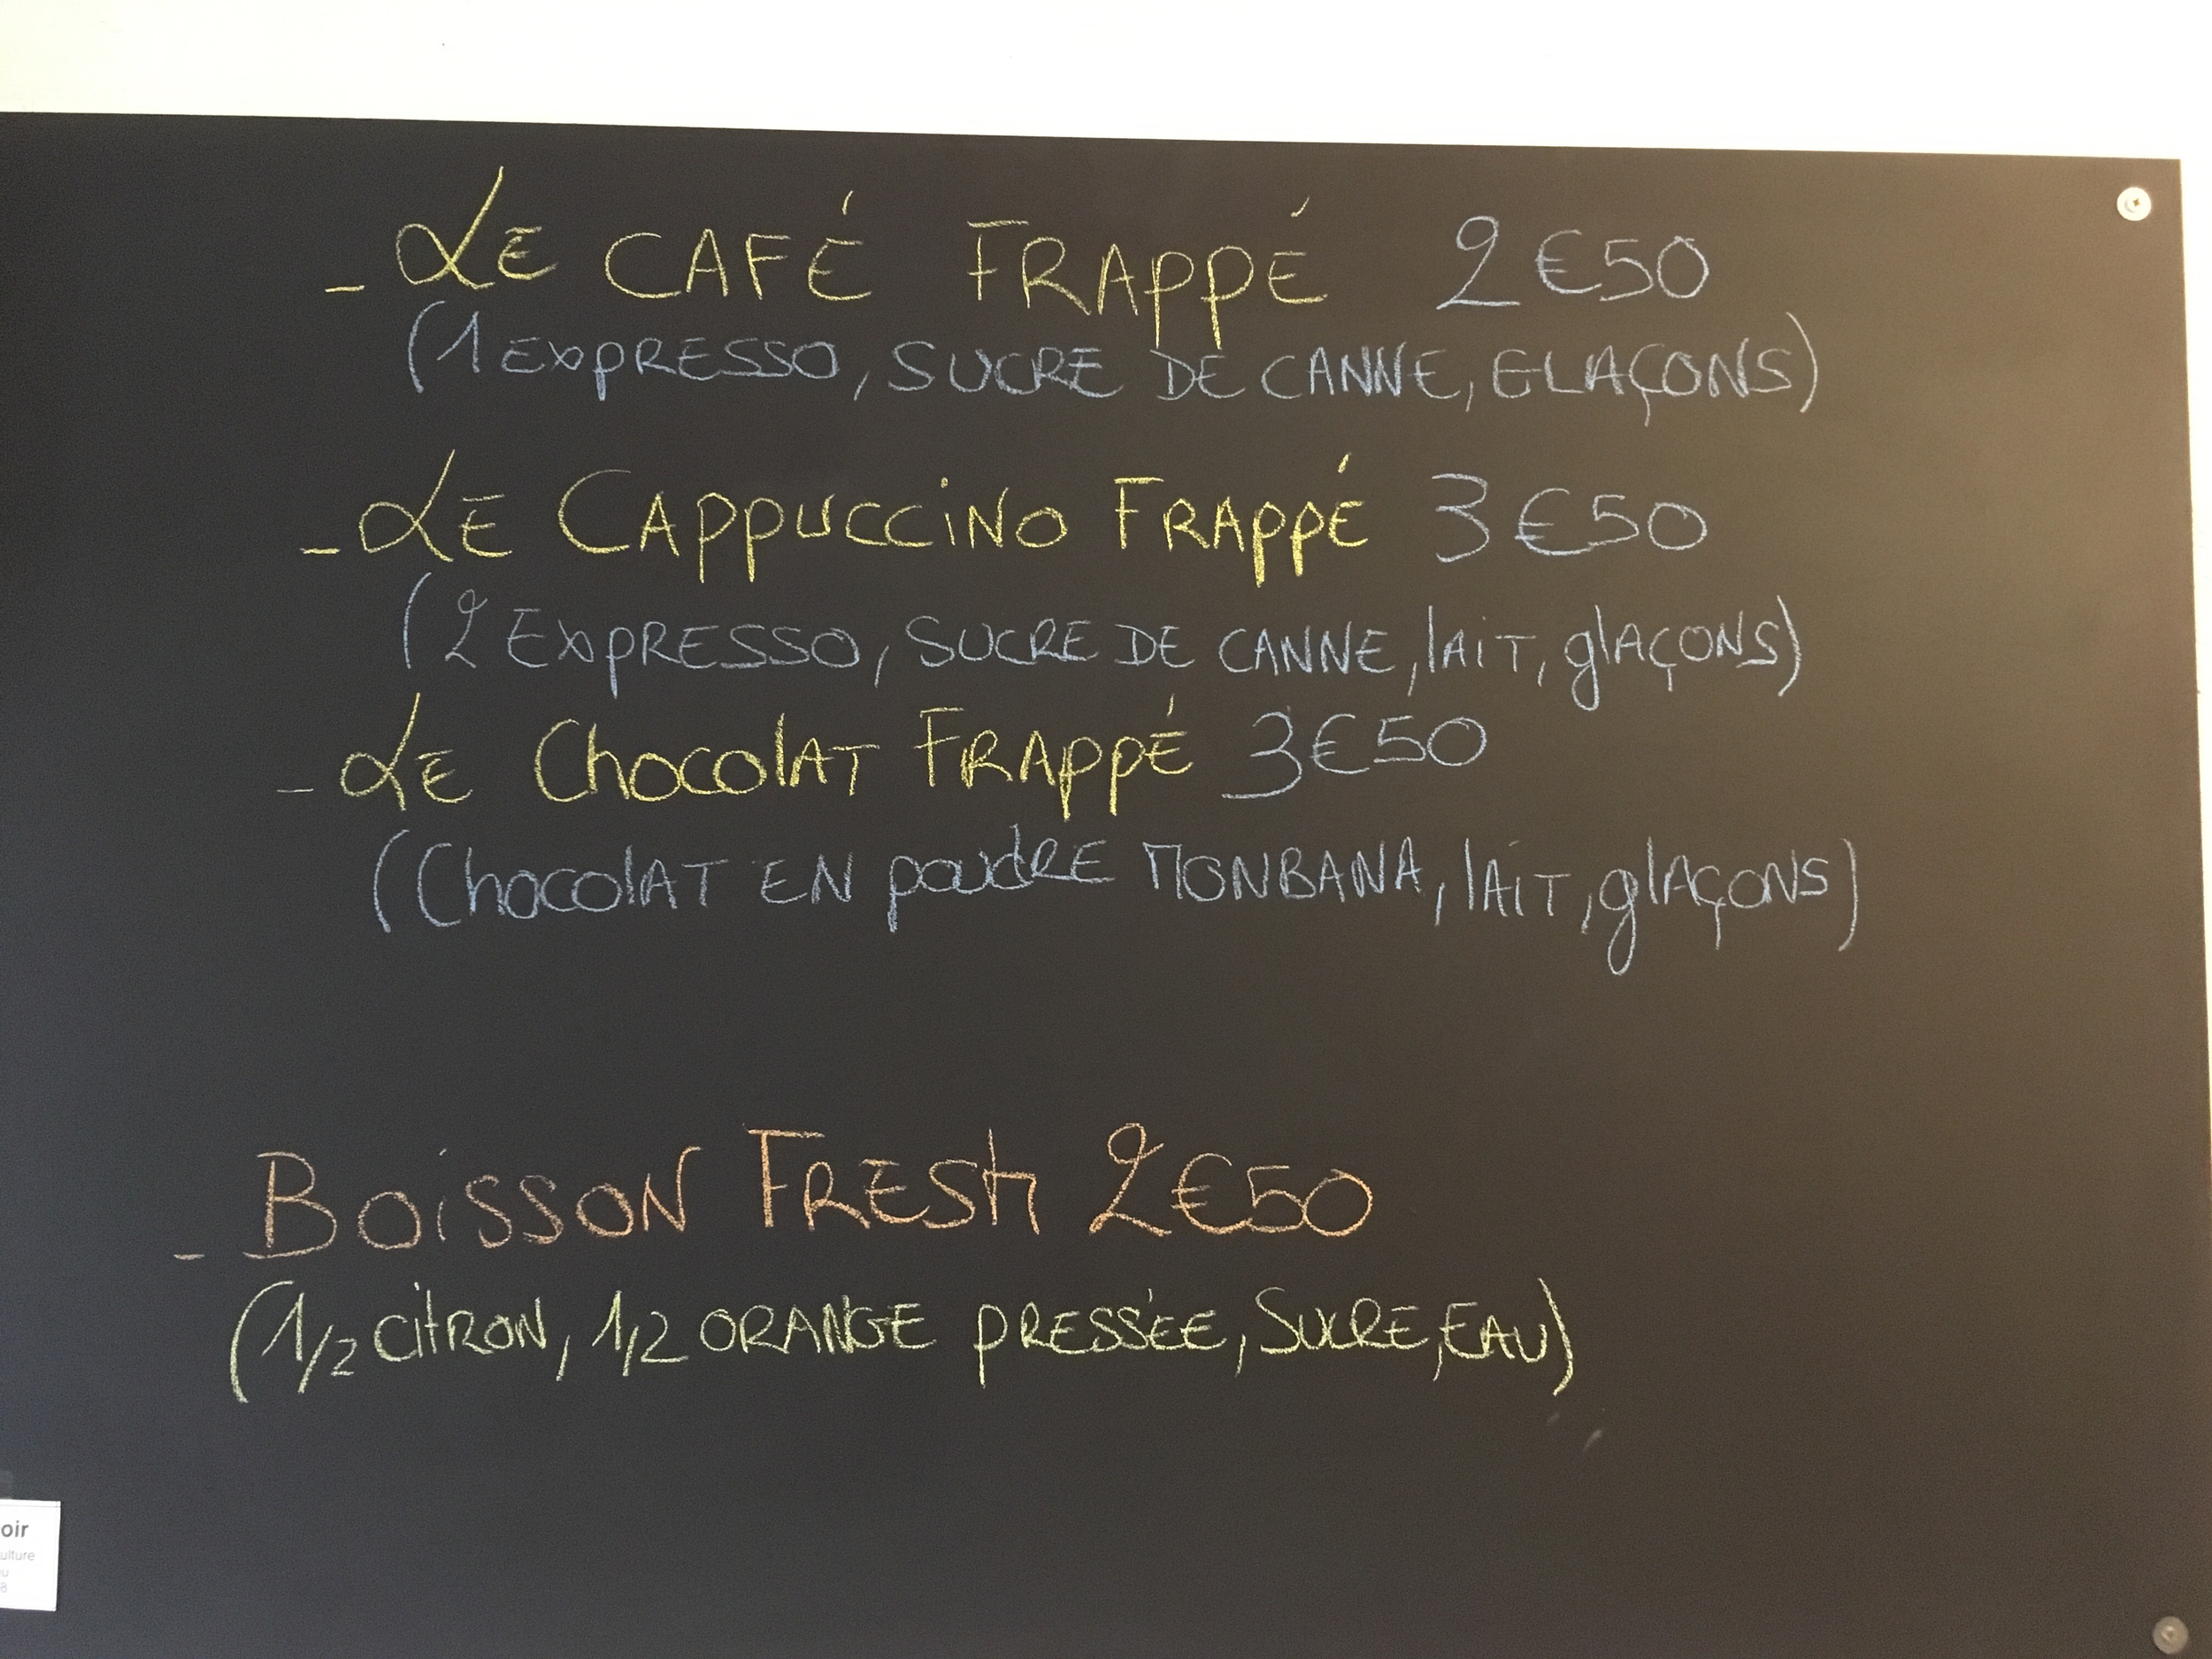 - LE CAFÉ FRAPPÉ 2€50
(1 EXPRESSO, SUCRE DE CANNE, GLAÇONS)
- LE CAPPUCCINO FRAPPÉ 3€50
(2 EXPRESSO, SUCRE DE CANNE, lAiT, glAÇONS)
- LE ChocolAT FRAPPÉ 3€50
(ChocolAT EN poudRE MONBANA, lAiT, glAÇONS)
- BOiSSON FRESH 2€50
(1/2 CiTRON, 1/2 ORANGE PRESSÉE, SUCRE, EAU)
oir
ulture
u
8